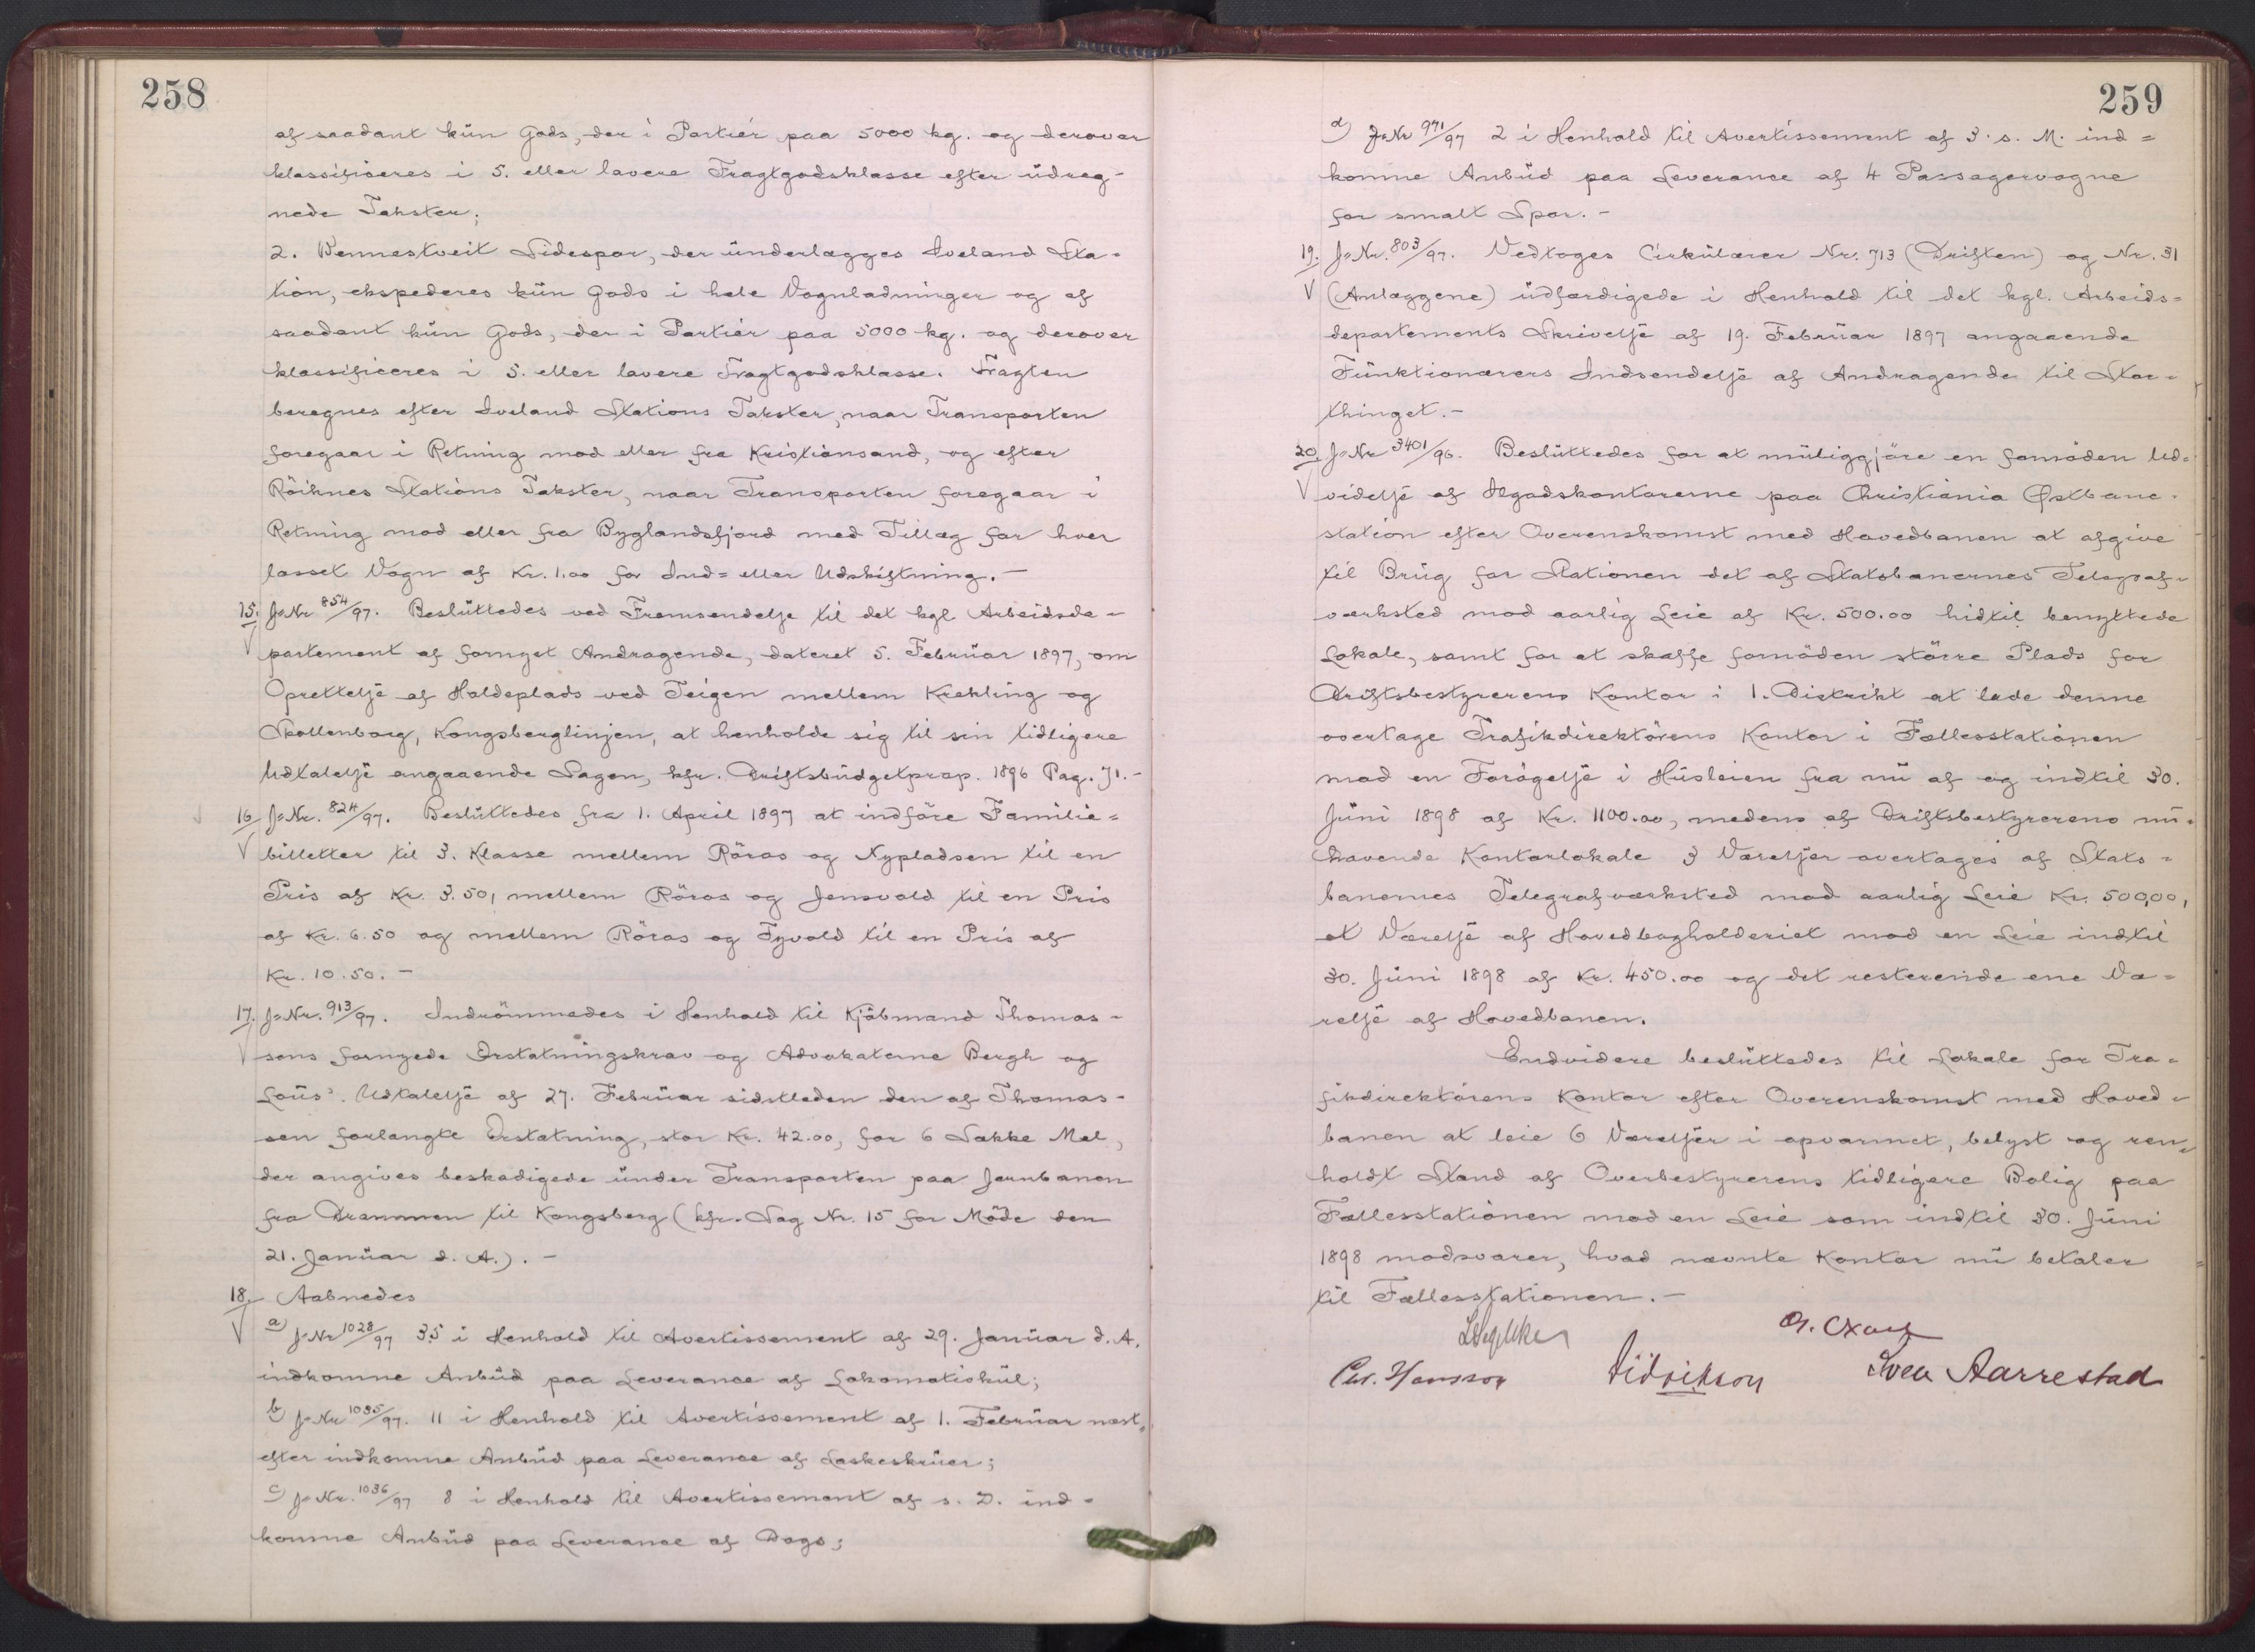 258
af saadant kün Gods, der i Partier paa 5000 kg. og derover
klassificeres i 5. eller lavere Fragtgodsklasse efter üdreg-
nede Takster;
2. Wennestveit Sidespor, der ünderlægges Iveland Sta-
tion, ekspederes kün Gods i hele Vognladninger og af
saadant kün Gods, der i Partier paa 5000 kg. og derover
klassificeres i 5. eller lavere Fragtgodsklasse. Fragten
beregnes efter Iveland Stations Takster, naar Transporten
foregaar i Retning mod eller fra Kristiansand, og efter
Röiknes Stations Takster, naar Transporten foregaar i
Retning mod eller fra Byglandsfjord med Tillæg for hver
lasset Vogn af Kr. 1.00 for Ind= eller Udskiftning. -
15. J=Nr 854/97. Beslüttedes ved Fremsendelse til det kgl Arbeidsde-
partement af fornyet Andragende, dateret 5. Februar 1897, om
Oprettelse af Holdeplads ved Teigen mellem Krekling og
Skollenborg, Kongsberglinjen, at henholde sig til sin tidligere
Udtalelse angaaende Sagen, kfr. Driftsbüdgetprop. 1896 Pag. 71. -
16. J=Nr. 824/97. Beslüttedes fra 1. April 1897 at indföre Familie=
billetter til 3. Klasse mellem Röros og Nypladsen til en
Pris af Kr. 3.50, mellem Röros og Jensvold til en Pris
af Kr. 6.50 og mellem Röros og Tyvold til en Pris af
Kr. 10.50. -
17. J=Nr. 913/97. Indrömmedes i Henhold til Kjöbmand Thomas-
sens fornyede Erstatningskrav og Advokaterne Bergh og
Loüs'. Udtalelse af 27. Februar sidstleden den af Thomas-
sen forlangte Erstatning, stor Kr. 42.00, for 6 Sække Mel,
der angives beskadigede ünder Transporten paa Jernbanen
fra Drammen til Kongsberg (kfr. Sag Nr. 15 for Möde den
21. Janüar d. A.). -
18. Aabnedes
a) J=Nr 1028/97 35 i Henhold til Avertissement af 29. Janüar d. A.
indkomne Anbüd paa Leverance af Lokomotivkül;
b) J=Nr 1035/97. 11 i Henhold til Avertissement af 1. Februar næst=
efter indkomne Anbüd paa Leverance af Laskeskrüer;
c) J=Nr. 1036/97 8 i Henhold til Avertissement af s. D. ind-
komne Anbüd paa Leverance af Dogs;
259
d) J=Nr 971/97 2 i Henhold til Avertissement af 3. s. M. ind=
komne Anbüd paa Leverance af 4 Passagervogne
for smalt Spor. -
19. J=Nr. 803/97. Vedtoges Cirkülærer Nr. 713 (Driften) og Nr. 31
(Anlæggene) üdfærdigede i Henhold til det kgl. Arbeids=
departements Skrivelse af 19. Februar 1897 angaaende
Fünktionærers Indsendelse af Andragender til Stor-
thinget. -
20. J=Nr 3401/96. Beslüttedes for at müliggjöre en fornöden Ud=
videlse af Ilgodskontorerne paa Christiania Østbane-
station efter Overenskomst med Hovedbanen at afgive
til Brüg for Stationen det af Statsbanernes Telegraf-
værksted mod aarlig Leie af Kr. 500.00 hidtil benyttede
Lokale, samt for at skaffe fornöden större Plads for
Driftsbestyrerens Kontor i 1. Distrikt at lade denne
overtage Trafikdirektörens Kontor i Fællesstationen
mod en Forögelse i Hüsleien fra nü af og indtil 30.
Jüni 1898 af Kr. 1100.00, medens af Driftsbestyrerens nü-
havende Kontorlokale 3 Værelser overtages af Stats=
banernes Telegrafværksted mod aarlig Leie Kr. 500,00,
et Værelse af Hovedbogholderiet mod en Leie indtil
30. Jüni 1898 af Kr. 450.00 og det resterende ene Væ-
relse af Hovedbanen.
Endvidere beslüttedes til Lokale for Tra=
fikdirektörens Kontor efter Overenskomst med Hoved-
banen at leie 6 Værelser i opvarmet, belyst og ren=
holdt Stand af Overbestyrerens tidligere Bolig paa
Fællesstationen mod en Leie som indtil 30. Jüni
1898 modsvarer, hvad nævnte Kontor nü betaler
til Fællesstationen. -
Chr. Hansson Didrikson Sven Aarrestad